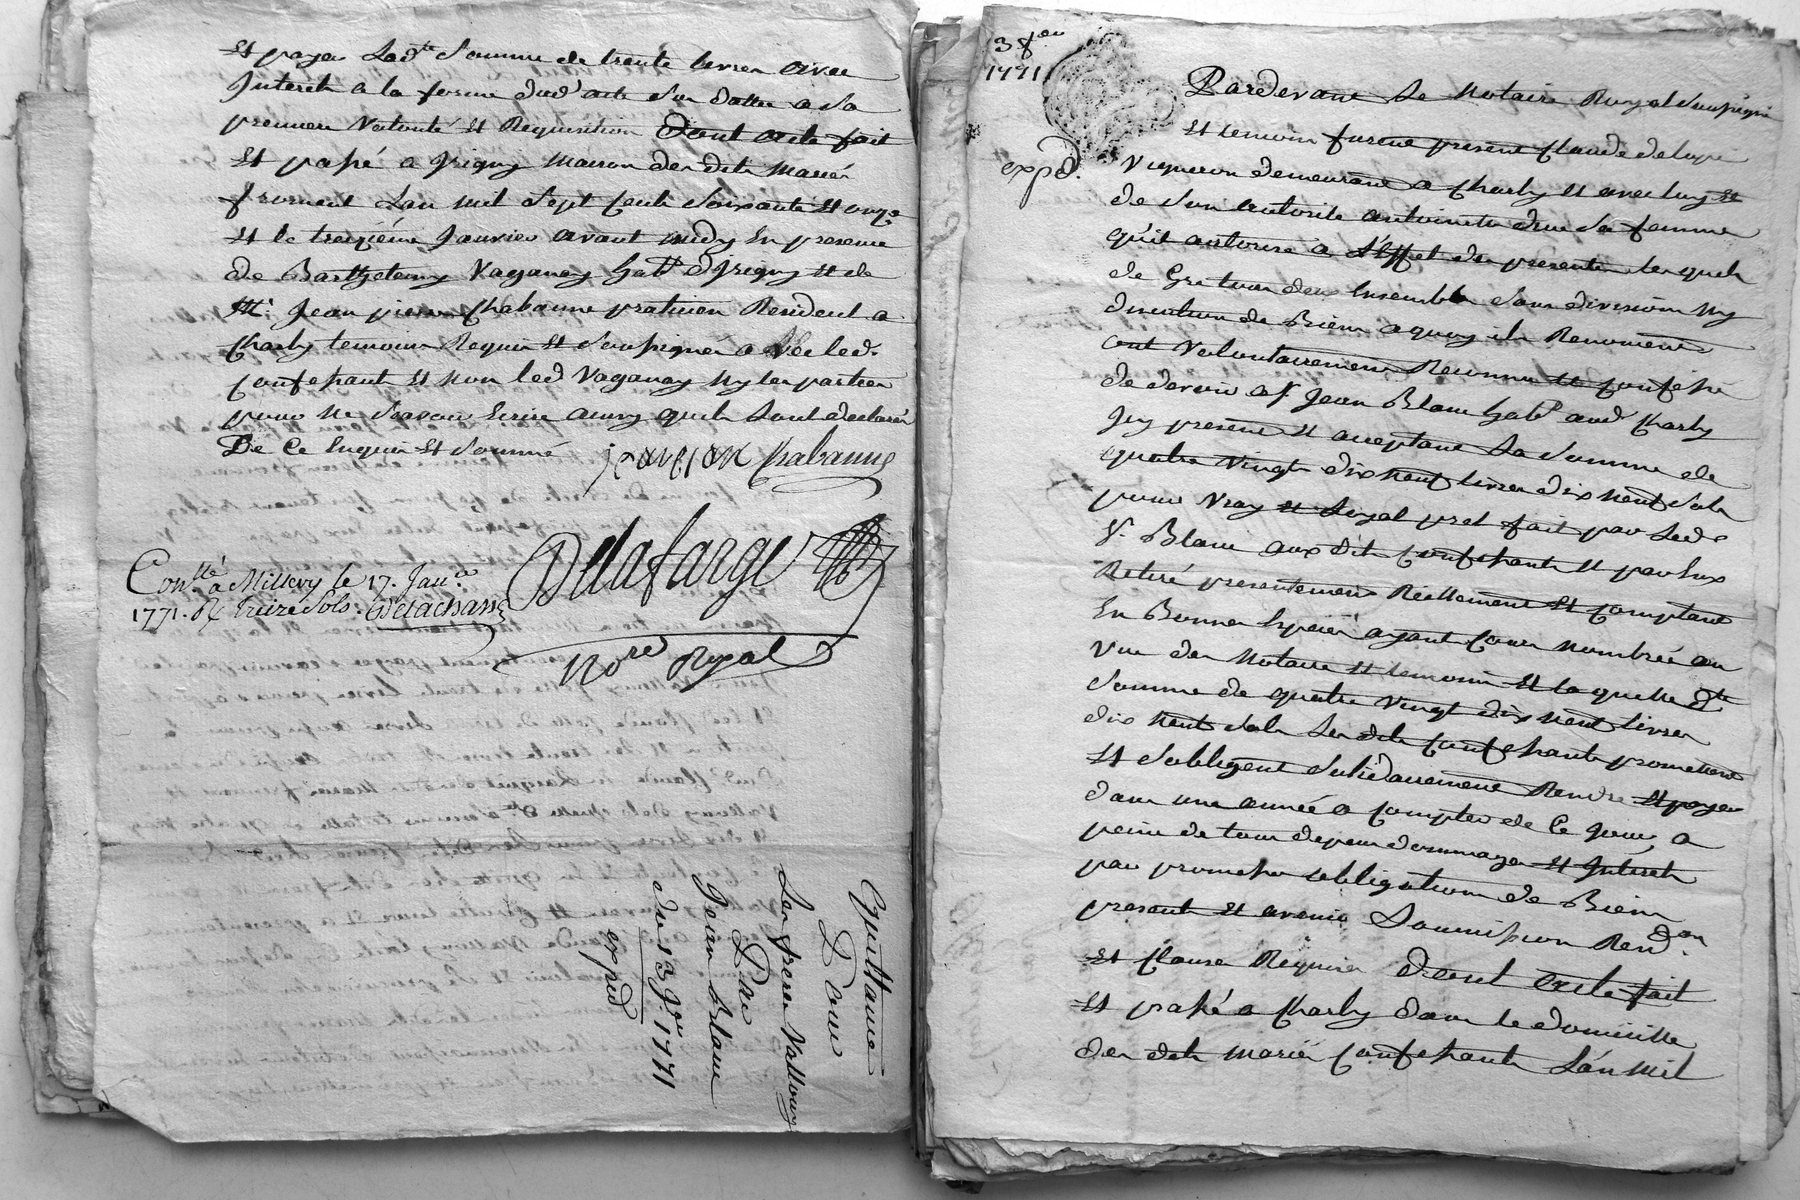 Et payer lad.te Somme de trente livres avec
Interets a la forme dud' acte Sur datte a Sa
premiere Volonté et Requisition dont acte fait
Et passé a Irigny maison des dits mariés
froment L'an mil Sept Cents Soixante et onze
Et le treizième Janvier avant midy En presence
de Barthelemy Vaganay hab.t d'Irigny et de
M.e Jean pierre Chabanne praticien Resident a
Charly temoins Requis et Soussignés avec led.
Confessant et non led Vaganay ny les parties
pour ne Scavoir Ecrire ainsy quils Sont declarés
De Ce Enquis et Sommé
Chabanne
Delafarge
No.re Royal
Con.llé a Millery le 17. Jan.er
1771. R/ treize Sols. Delachass
Quittance
Pour
Les freres Valloux
De
Jean Blanc
du 13 J.er 1771
expéd
3 J.er
1771
expéd.
Pardevant Le Notaire Royal Soussigné
Et temoins furent presents Claude
Vigneron demeurant a Charly et avec luy et
de Son autorité antoinette Sa femme
qu'il autorise a L'Effet des presentes lesquels
de Gré tous deux Ensemble Sans division ny
discution de Biens a quoy ils Renoncent
ont Volontairement Reconnu et Confessé
de devoir a S.r Jean Blanc hab.t aud Charly
Icy present et acceptant La Somme de
quatre Vingt dix neuf livres dix neuf Sols
pour Vray et Loyal pret fait par Led.
S.r Blanc aux dits Confessants et par Eux
Retiré presentement Réellement et Comptant
En Bonnes Especes ayant Cours nombrées au
Vue des Notaire et temoins et la quelle d.te
Somme de quatre Vingt dix neuf livres
dix neuf Sols Les dits Confessants promettent
Et S'obligent Solidairement Rendre et payer
dans une année a Compter de Ce Jour, a
peine de tous depens dommages et Interets
par promesses obligations de Biens
presents et avenir Soumissions Ren.on
Et Clauses Requises dont acte fait
Et passé a Charly dans le domicille
des dits mariés Confessants L'an mil